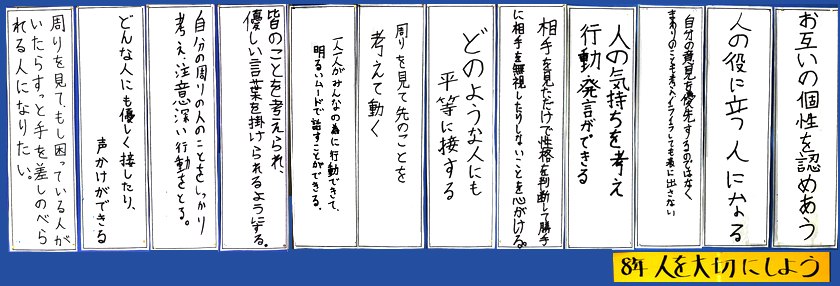 お互いの個性を認めあう
人の役に立つ人になる
自分の意見を優先するのではなく
まわりのことも考え、イライラしても表に出さない
人の気持ちを考え
行動・発言ができる
相手を見ただけで性格を判断して勝手
に相手を無視したりしないことを心がける。
どのような人にも
平等に接する
周りを見て先のことを
考えて動く
一人一人がみんなの為に行動できて、
明るいムードで話すことができる。
皆のことを考えられ、
優しい言葉を掛けられるようにする。
自分の周りの人のことをしっかり
考え、注意深い行動をとる。
どんな人にも優しく接したり、
声かけができる
周りを見てもし困っている人が
いたらすっと手を差しのべら
れる人になりたい。
8年 人を大切にしよう